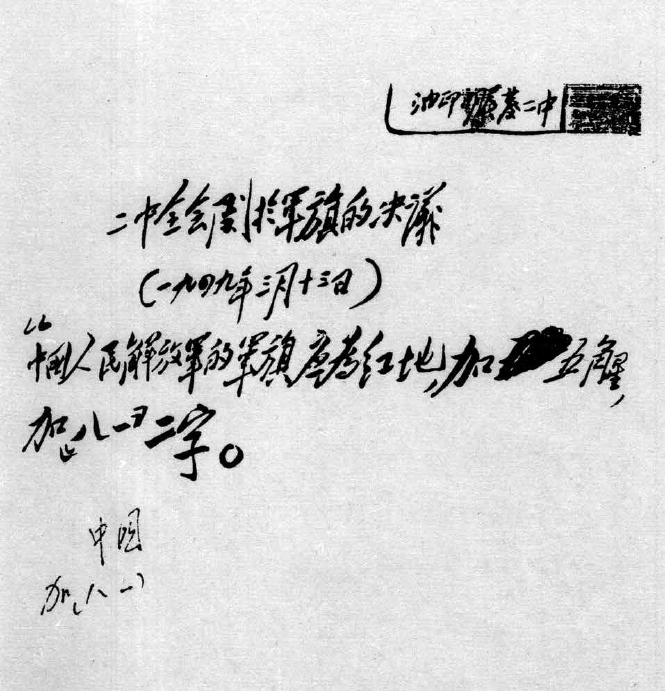 油印 二中
二中全会关于军旗的决议
(一九四九年三月十三日)
中国人民解放军的军旗应为红地,加五角星,
加“八一”二字。
中国
加“八一”